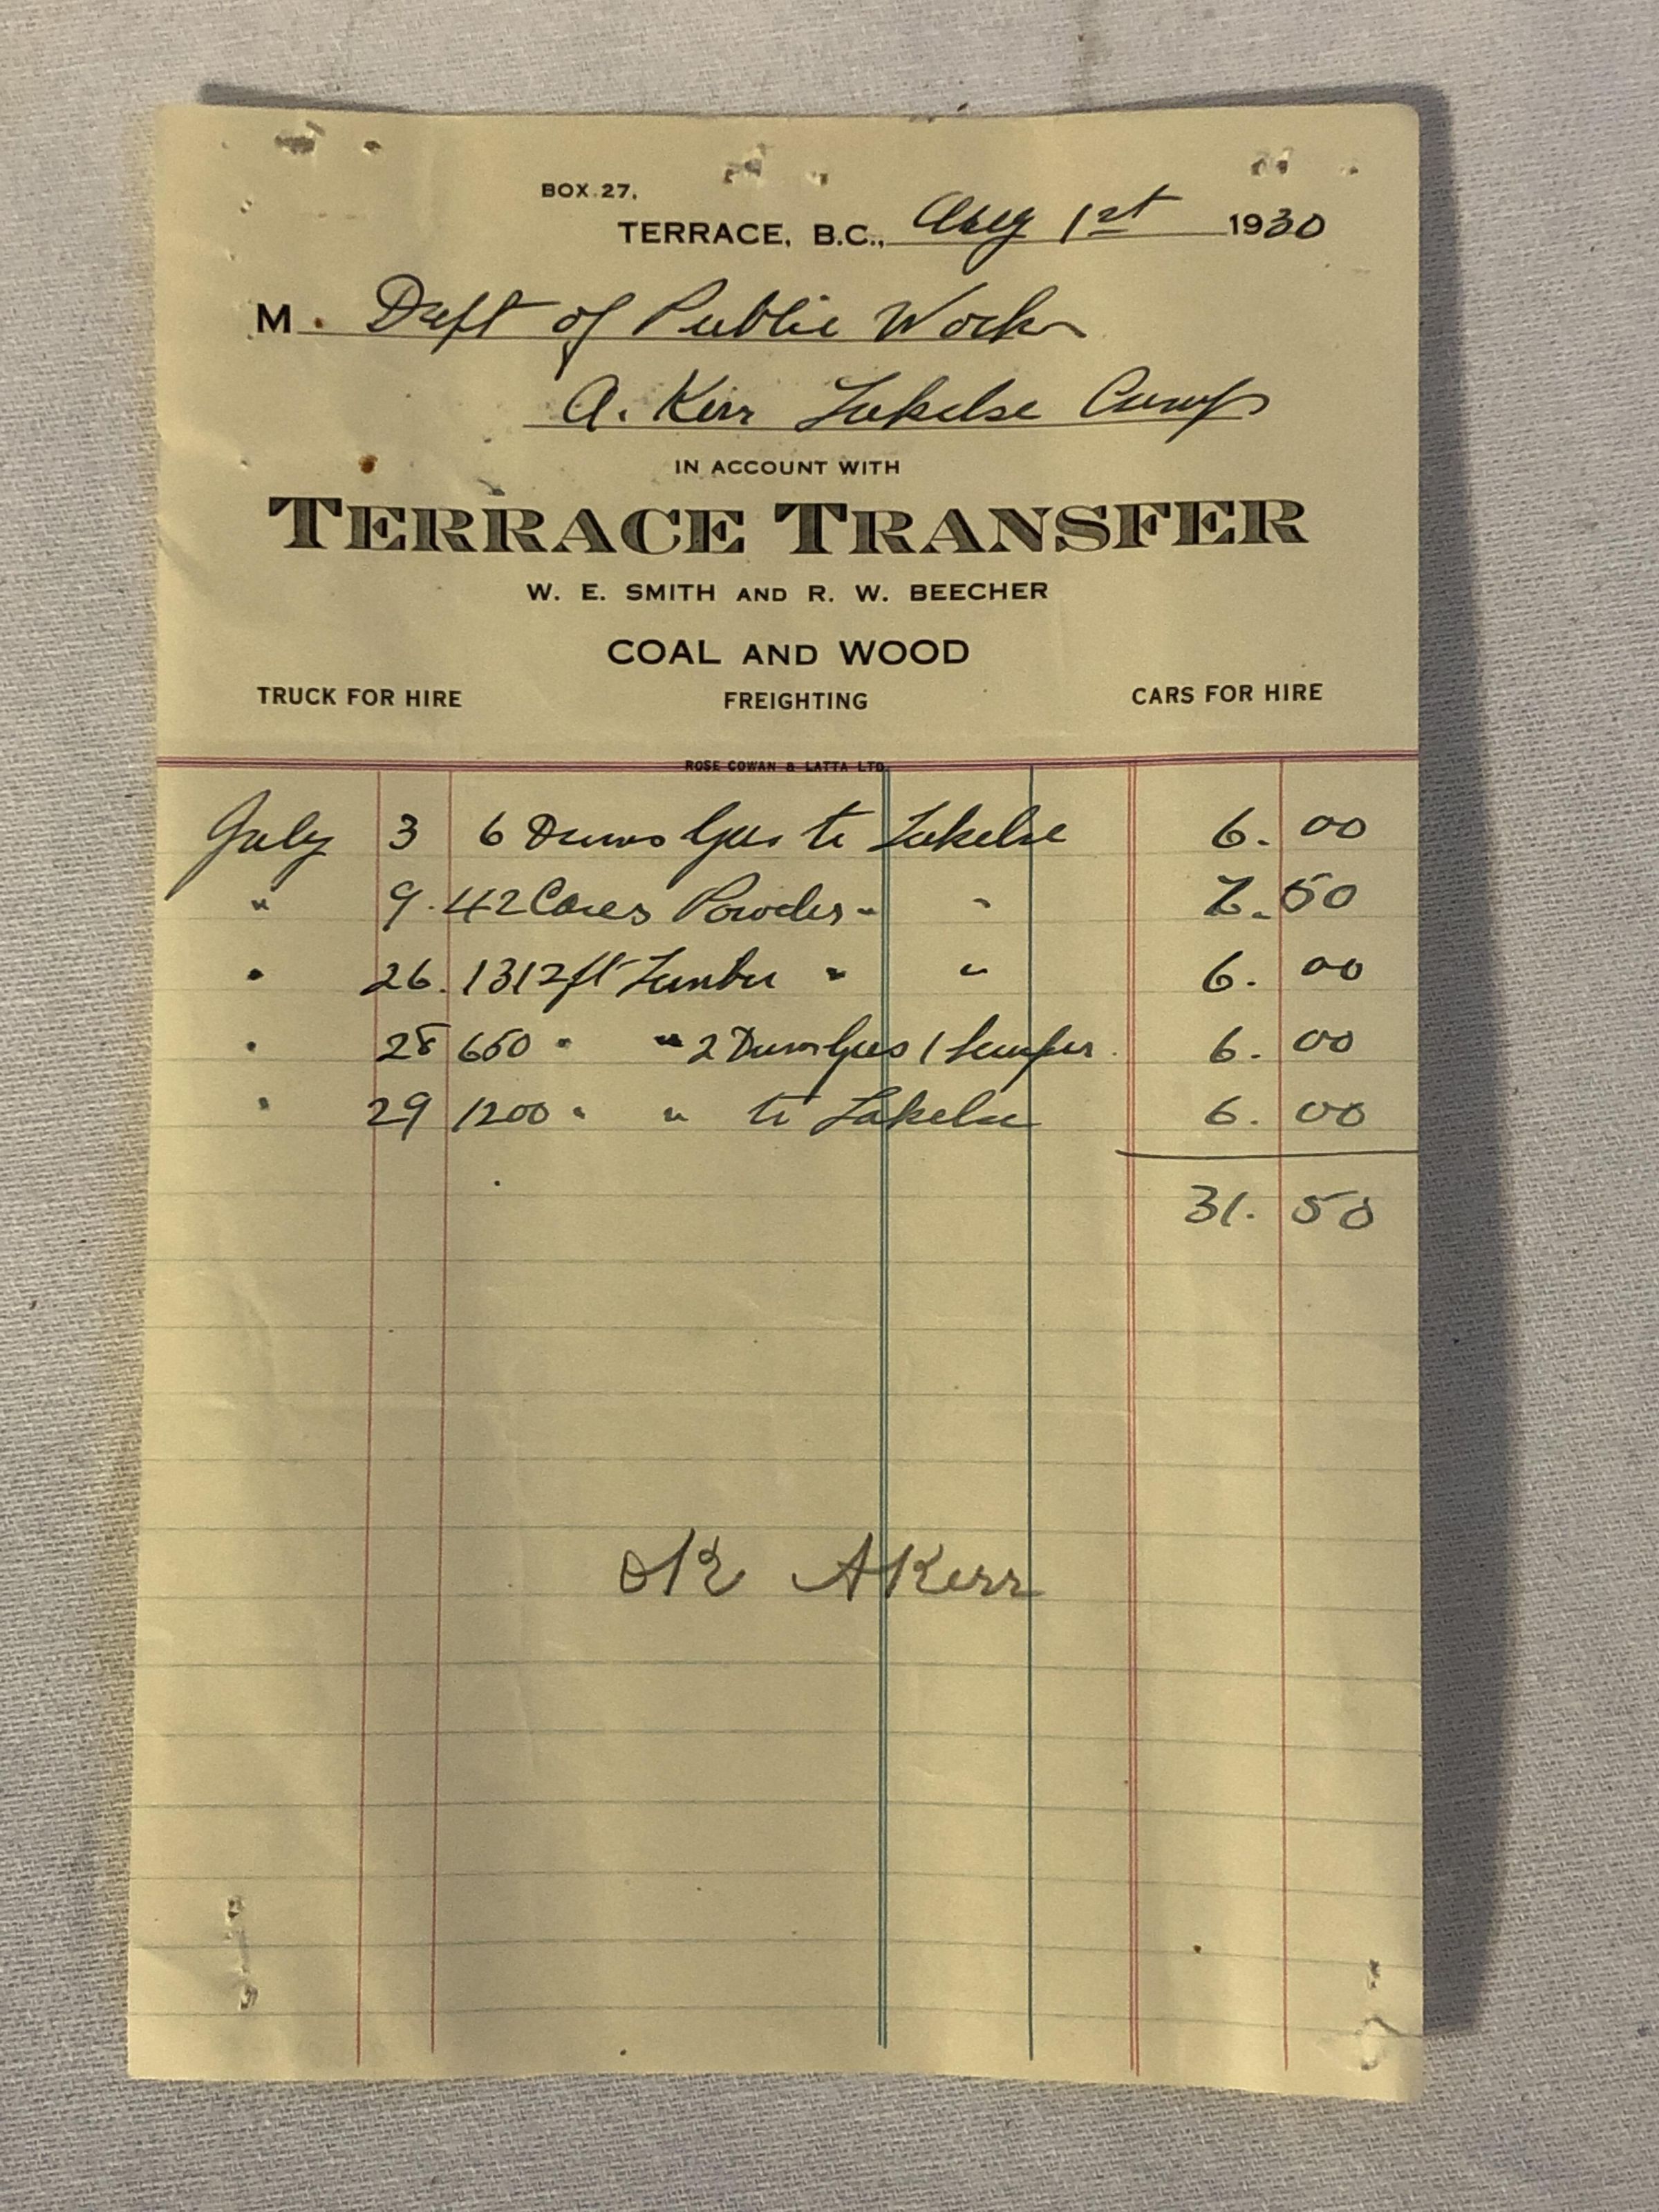 BOX 27,
TERRACE, B.C., Aug 1st 1930
M. Dept of Public Works
A. Kerr Lakelse Camp
IN ACCOUNT WITH
TERRACE TRANSFER
W. E. SMITH AND R. W. BEECHER
COAL AND WOOD
TRUCK FOR HIRE FREIGHTING CARS FOR HIRE
ROSE COWAN & LATTA LTD.
July 3 6 Drums Gas to Lakelse 6.00
" 9. 42 Cases Powder " " 7.50
" 26. 1312 ft Lumber " " 6.00
" 28 650 " " 2 Drum Gas 1 6.00
" 29 1200 " " to Lakelse 6.00
31.50
OK AKerr